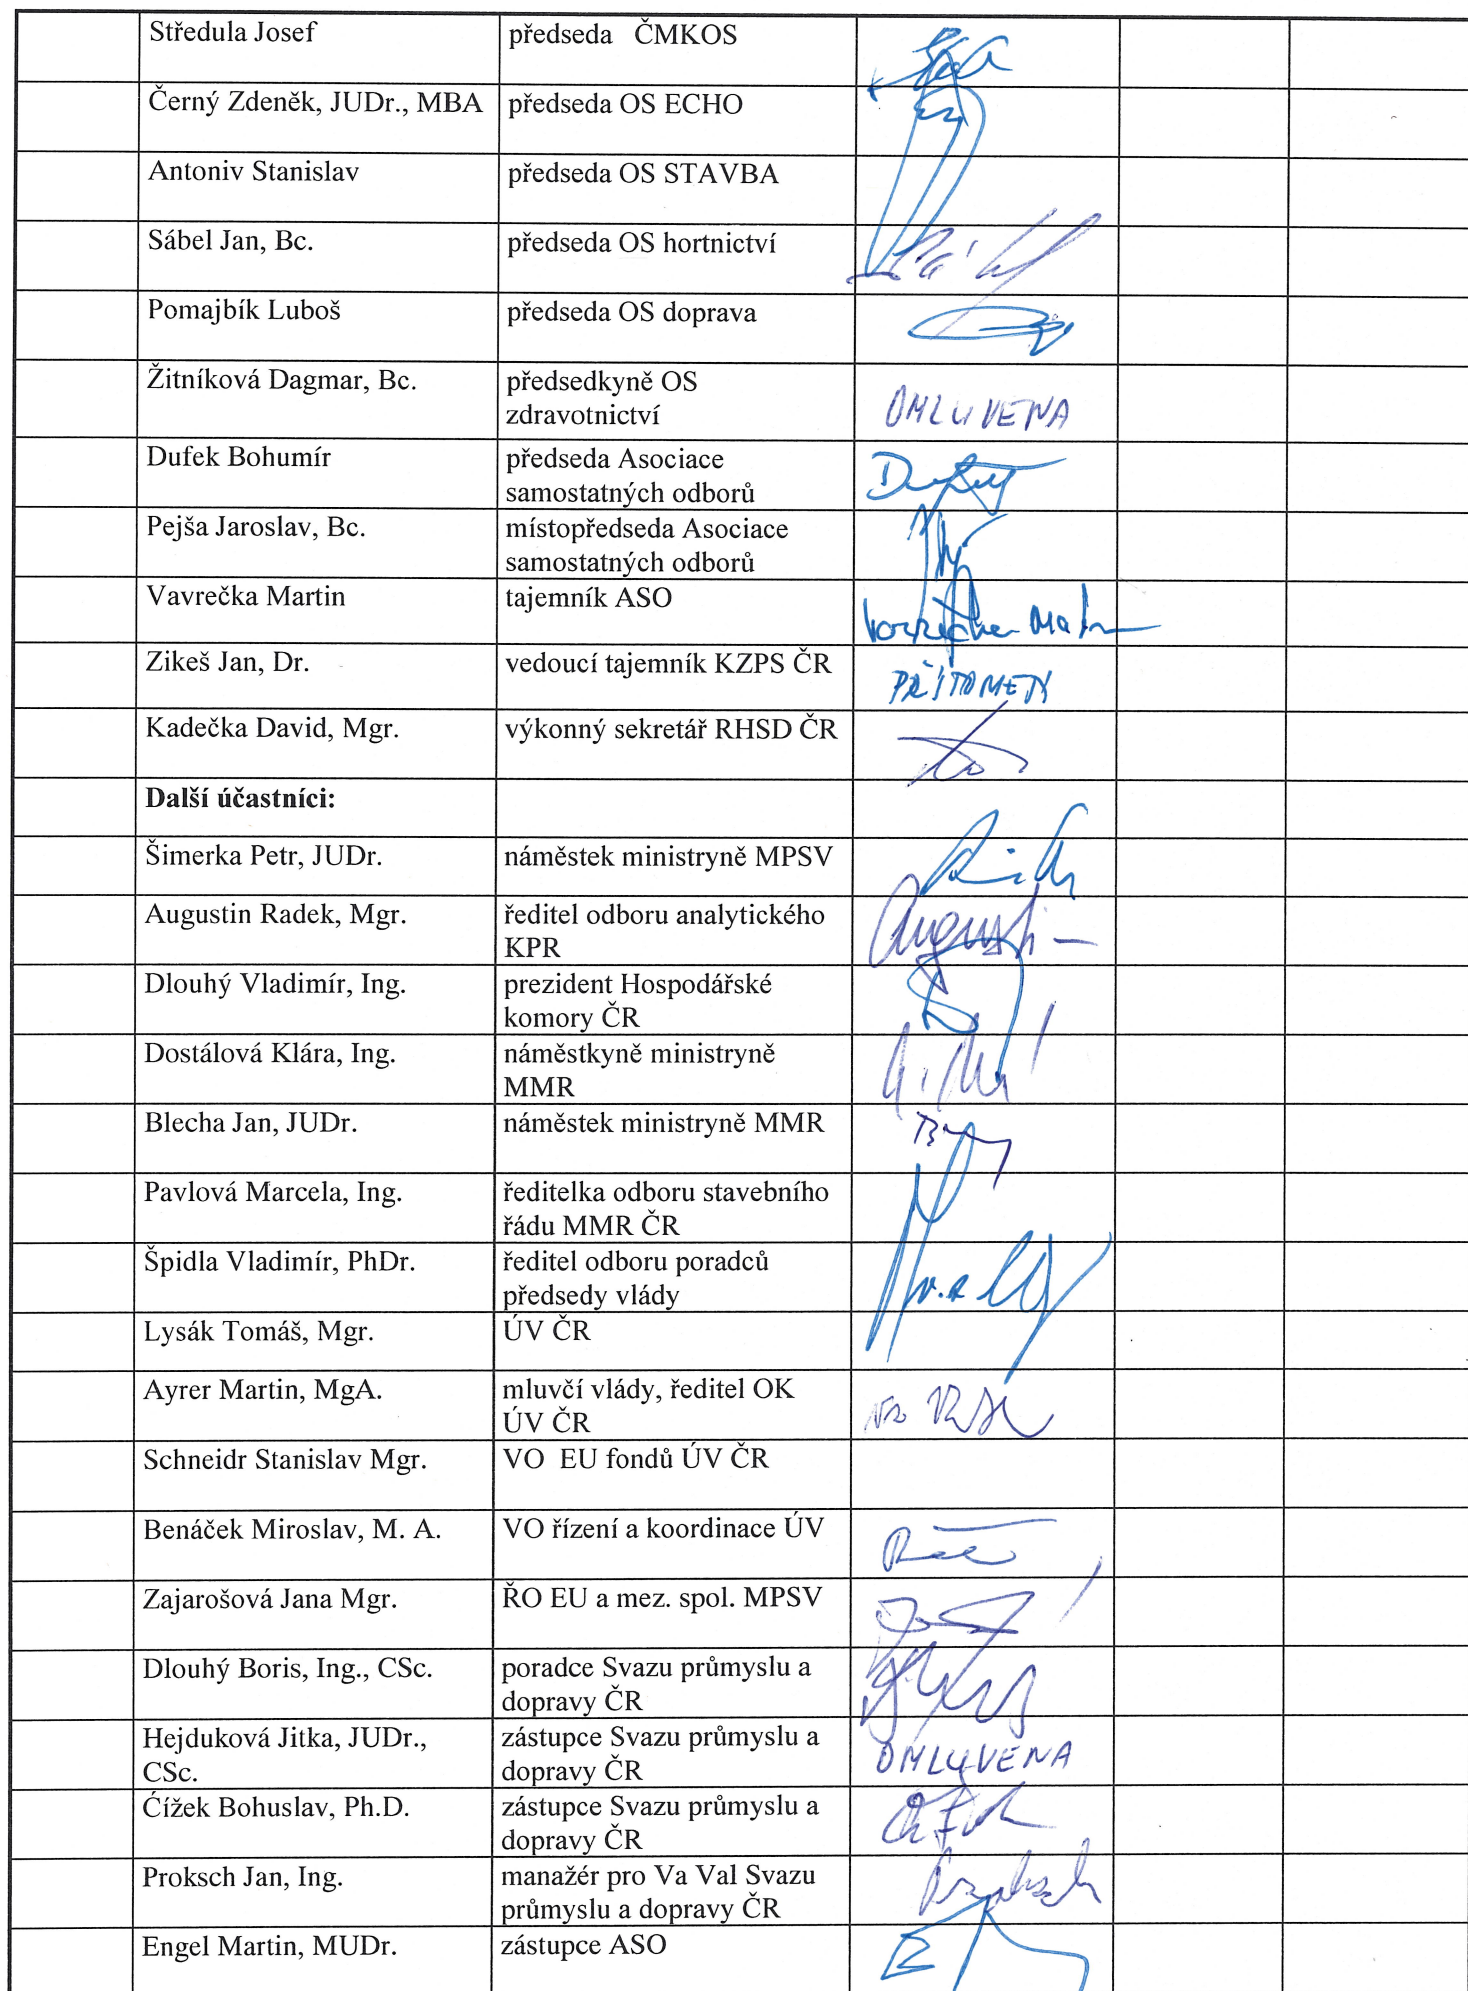 Středula Josef předseda ČMKOS
Černý Zdeněk, JUDr., MBA předseda OS ECHO
Antoniv Stanislav předseda OS STAVBA
Sábel Jan, Bc. předseda OS hortnictví
Pomajbík Luboš předseda OS doprava
Žitníková Dagmar, Bc. předsedkyně OS
zdravotnictví OMLUVENA
Dufek Bohumír předseda Asociace
samostatných odborů
Pejša Jaroslav, Bc. místopředseda Asociace
samostatných odborů
Vavrečka Martin tajemník ASO
Zikeš Jan, Dr. vedoucí tajemník KZPS ČR
Kadečka David, Mgr. výkonný sekretář RHSD ČR
Další účastníci:
Šimerka Petr, JUDr. náměstek ministryně MPSV
Augustin Radek, Mgr. ředitel odboru analytického
KPR
Dlouhý Vladimír, Ing. prezident Hospodářské
komory ČR
Dostálová Klára, Ing. náměstkyně ministryně
MMR
Blecha Jan, JUDr. náměstek ministryně MMR
Pavlová Marcela, Ing. ředitelka odboru stavebního
řádu MMR ČR
Špidla Vladimír, PhDr. ředitel odboru poradců
předsedy vlády
Lysák Tomáš, Mgr. ÚV ČR
Ayrer Martin, MgA. mluvčí vlády, ředitel OK
ÚV ČR
Schneidr Stanislav Mgr. VO EU fondů ÚV ČR
Benáček Miroslav, M. A. VO řízení a koordinace ÚV
Zajarošová Jana Mgr. ŘO EU a mez. spol. MPSV
Dlouhý Boris, Ing., CSc. poradce Svazu průmyslu a
dopravy ČR
Hejduková Jitka, JUDr., zástupce Svazu průmyslu a
CSc. dopravy ČR OMLUVENA
Ćížek Bohuslav, Ph.D. zástupce Svazu průmyslu a
dopravy ČR
Proksch Jan, Ing. manažér pro Va Val Svazu
průmyslu a dopravy ČR
Engel Martin, MUDr. zástupce ASO